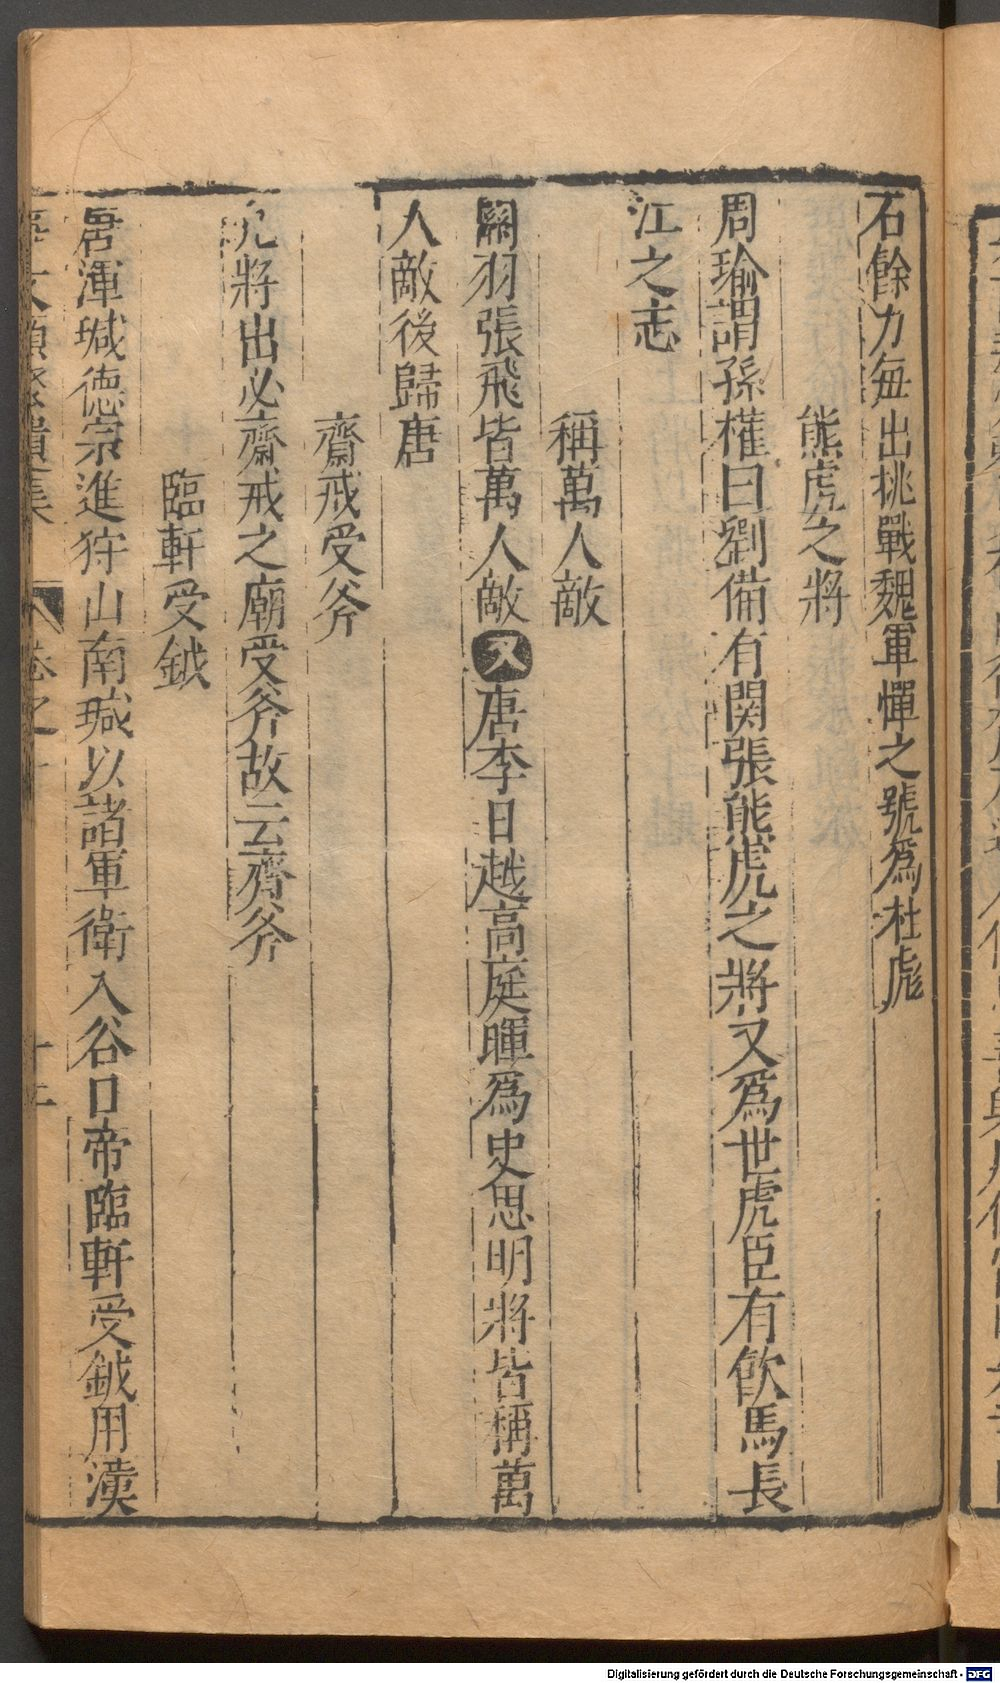 石餘力每出挑戰魏軍憚之號爲杜彪
熊虎之將
周瑜謂孫權曰劉備有関張熊虎之將又爲世虎臣有飲馬長
江之志
稱萬人敵
關羽張飛皆萬人敵又唐李日越高庭暉爲史思明將皆稱萬
人敵後歸唐
齋戒受斧
凡將出必齋戒之廟受斧故云齊斧
臨軒受鉞
唐渾瑊德宗進狩山南瑊以諸軍衛入谷口帝臨軒受鉞用漢
Digitalisierung gefördert durch die Deutsche Forschungsgemeinschaft - DFG